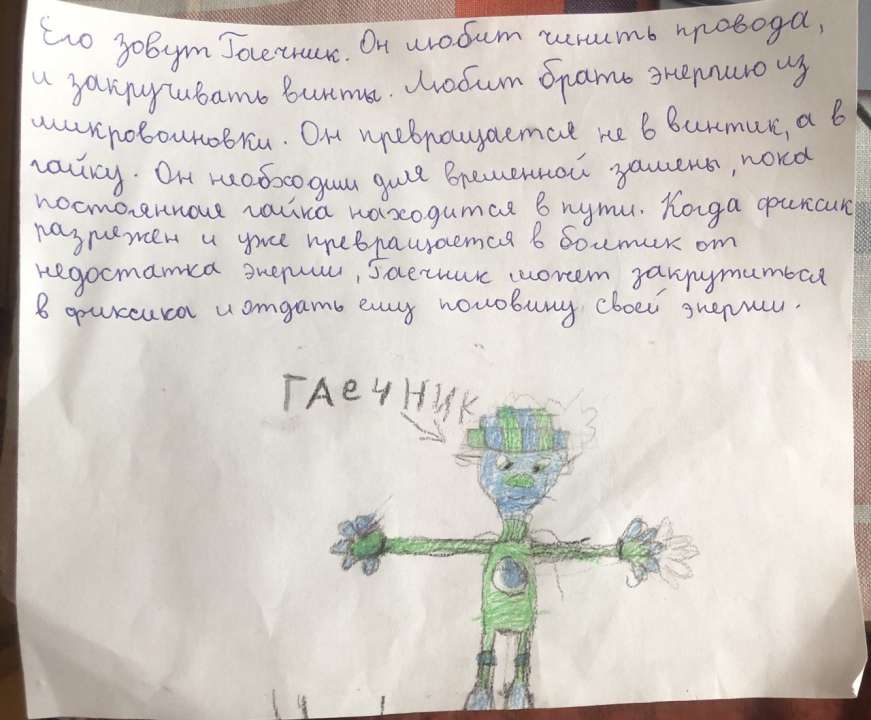 Его зовут Гаечник. Он любит чинить провода,
и закручивать винты. Любит брать энергию из
микроволновки. Он превращается не в винтик, а в
гайку. Он необходим для временной замены, пока
постоянная гайка находится в пути. Когда фиксик
разряжен и уже превращается в болтик от
недостатка энергии, Гаечник может закрутиться
в фиксика и отдать ему половину своей энергии.
ГАЕЧНИК